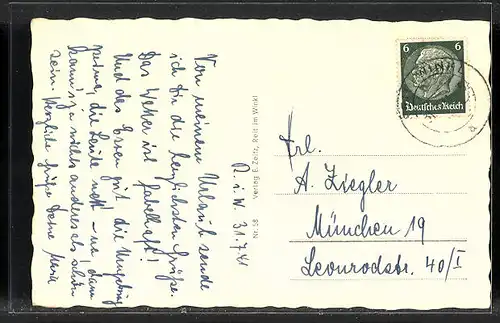 R. i. W. 31.7.41
Von meinem Urlaub sende
ich Dir die herzlichsten Grüße.
Das Wetter ist fabelhaft!
Und das Essen gut, die Umgebung
prima, die Leute nett – na, dann
kann's ja nicht anders als schön
sein. Herzliche Grüße Deine Maria
Nr. 58 Verlag E. Zeitz, Reit im Winkl
6 6
Deutsches Reich
Frl.
A. Ziegler
München 19
Leonrodstr. 40/I